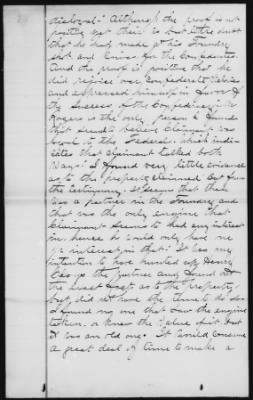 disloyal." Although the proof is not
positive yet there is but little doubt
that he had made at his Foundry
shot and for the Confederates.
And the proof is positive that he
did rejoice over Confederate Victories
and expressed himself in favor of
the Success of the Confederacy. Mr
Rogers is the only person I found
that seemed believe Claimant was
loyal to the Federals. which indi-
cates that claimant talked both
ways. I found very little evidence
as to the property claimed but from
the testimony. It seems that there
was a partner in the Foundry and
that was the only engine that
Claimant seems to had any interest
in. hence he could only have no
interest in that. It was my
intention to have hunted up Henry
the partner and found out
the exact facts as to the property,
but did not have the time to do so.
I found no one that saw the engine
taken, or knew the value of it. but
it was an old one. It would consume
a great deal of time to make a